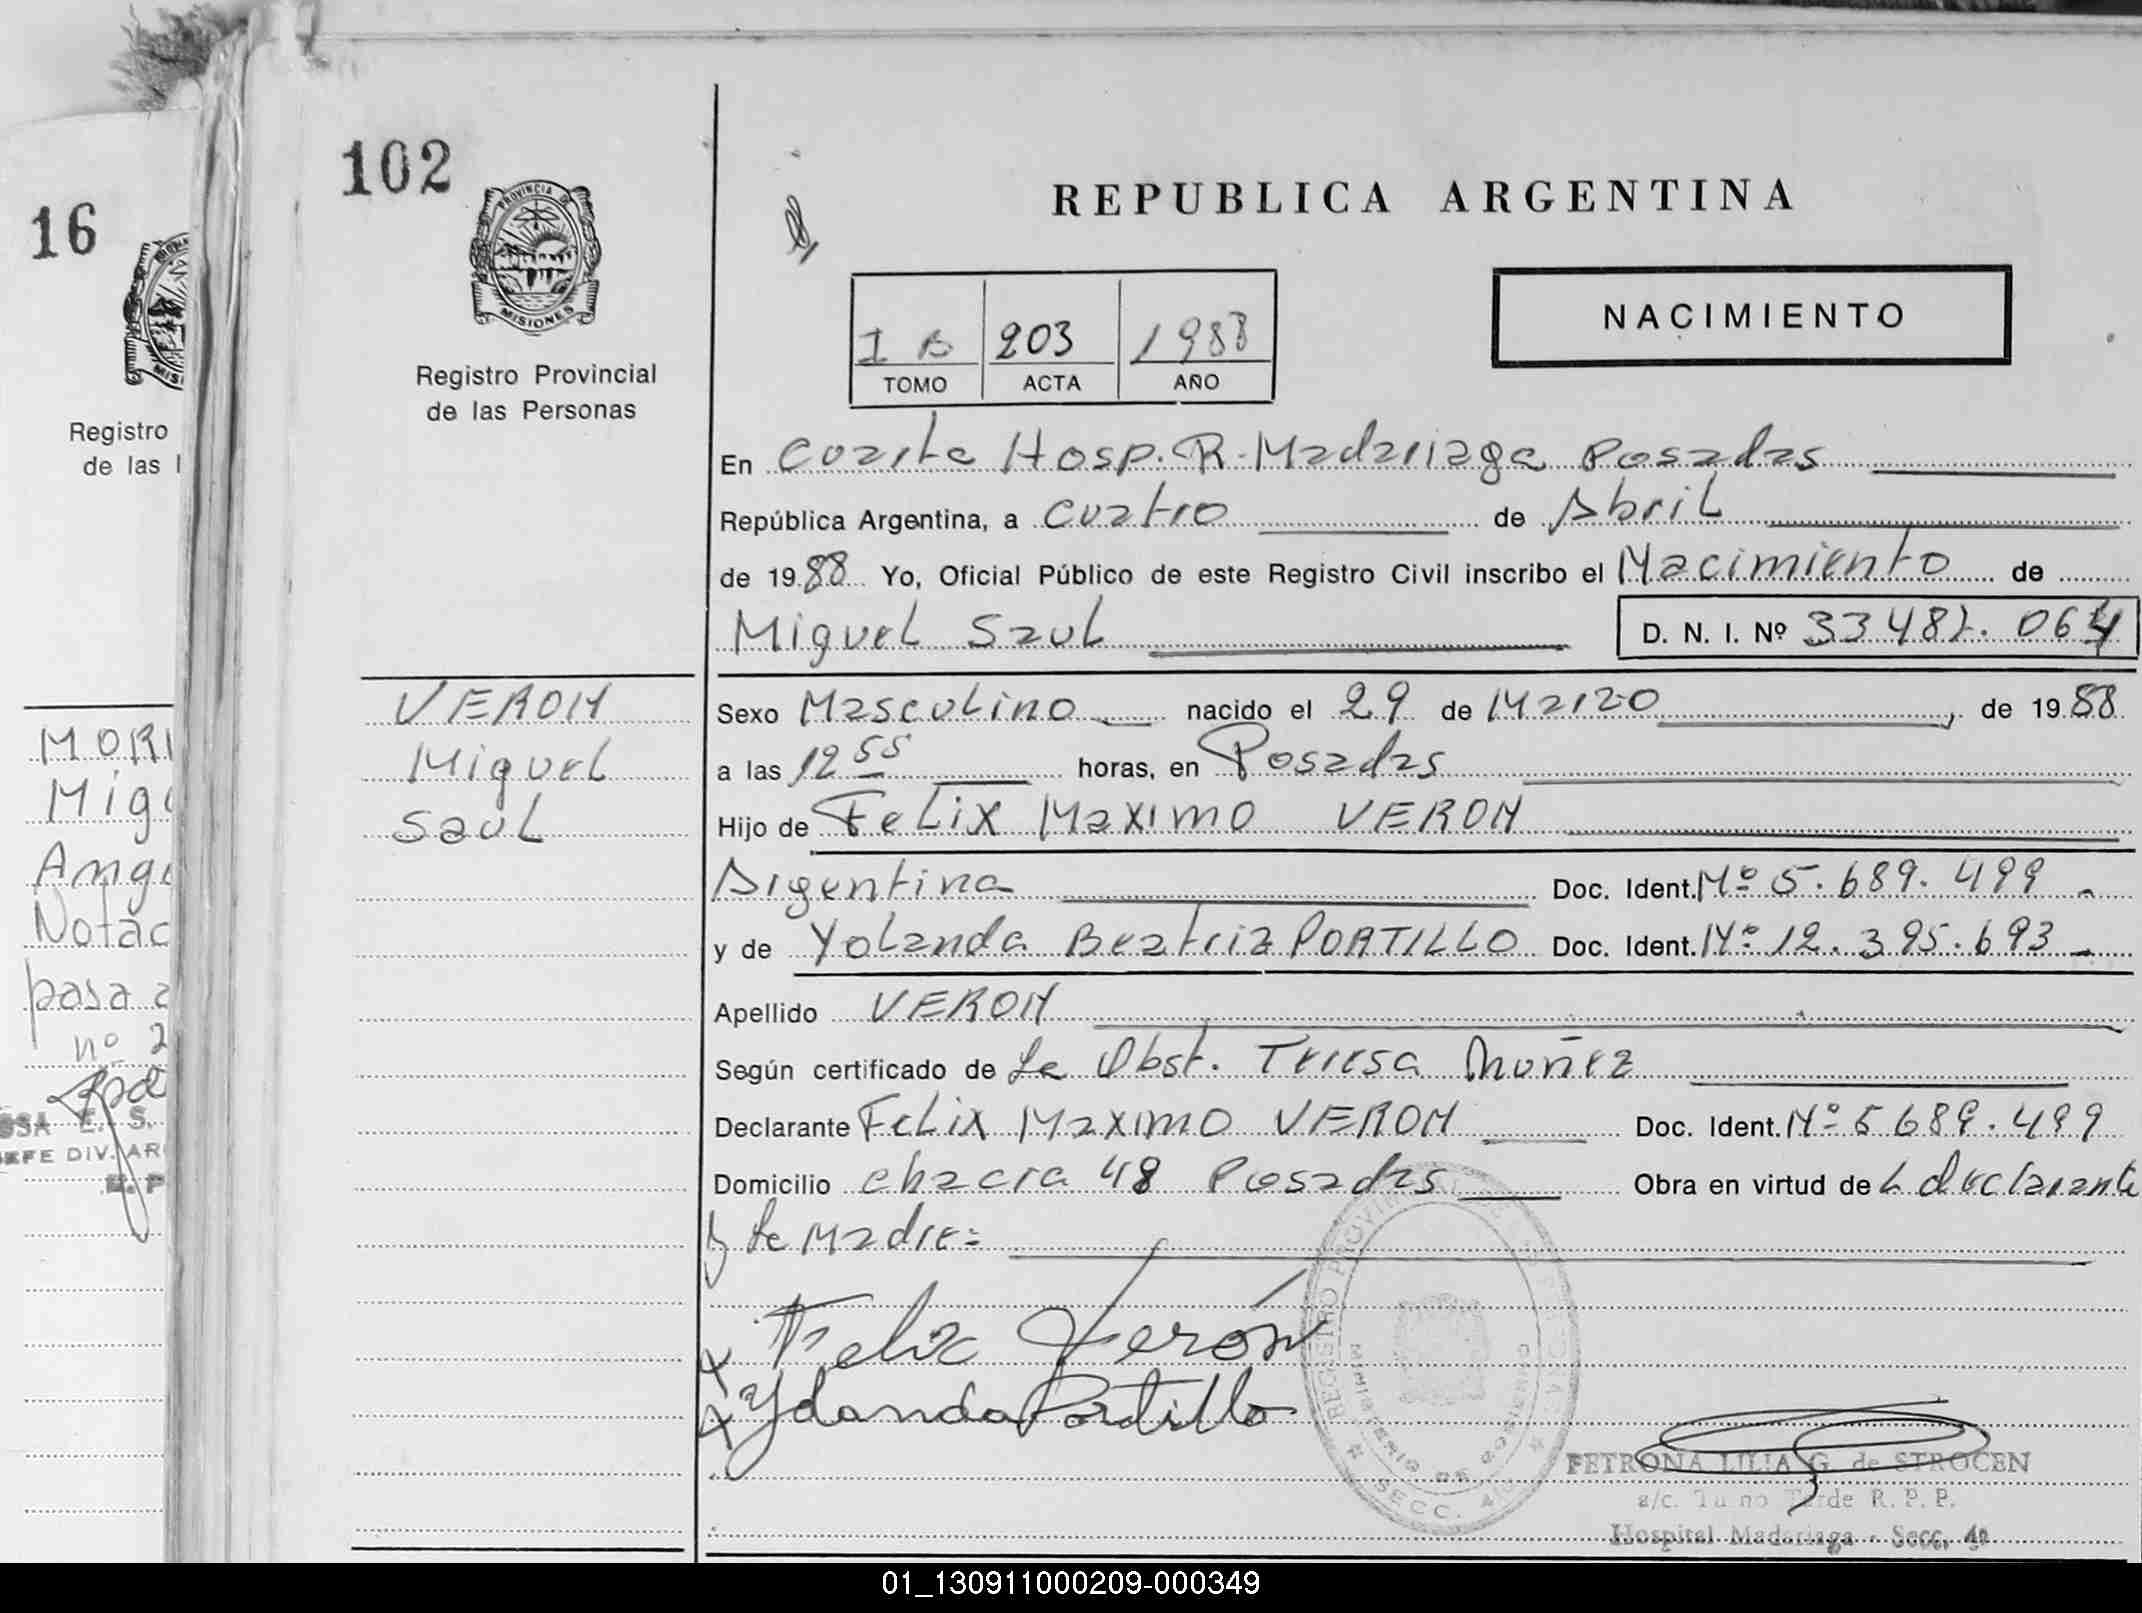 102
PROVINCIA DE
MISIONES
Registro Provincial
de las Personas
REPUBLICA ARGENTINA
NACIMIENTO
I B 203 1988
TOMO ACTA AÑO
En Cuarta Hosp. R. Madariaga Posadas
República Argentina, a cuatro de Abril
de 1988 Yo, Oficial Público de este Registro Civil inscribo el Nacimiento de
Miguel Saul D. N. I. Nº 33.482.064
VERON
Miguel
Saul
Sexo Masculino nacido el 29 de Marzo de 1988
a las 12 55 horas, en Posadas
Hijo de Felix Maximo VERON
Argentina Doc. Ident. Nº 5.689.499
y de Yolanda Beatriz PORTILLO Doc. Ident. Nº 12.395.693
Apellido VERON
Según certificado de La Obst. Teresa Muñez
Declarante Felix Maximo VERON Doc. Ident. Nº 5689.499
Domicilio chacra 48 Posadas Obra en virtud de L declarante
y La Madre=
Felix Verón
Yolanda Portillo
REGISTRO PROVINCIAL DE LAS PERSONAS
SECC.
PETRONA LILIA G. de STROCEN
a/c. Turno Tarde R. P. P.
Hospital Madariaga - Secc. 4ª
16
MISI
Registro
de las
MOR
Mig
Ang
Notac
pasa a
nº 2
E. S.
JEFE DIV. AR
01_130911000209-000349